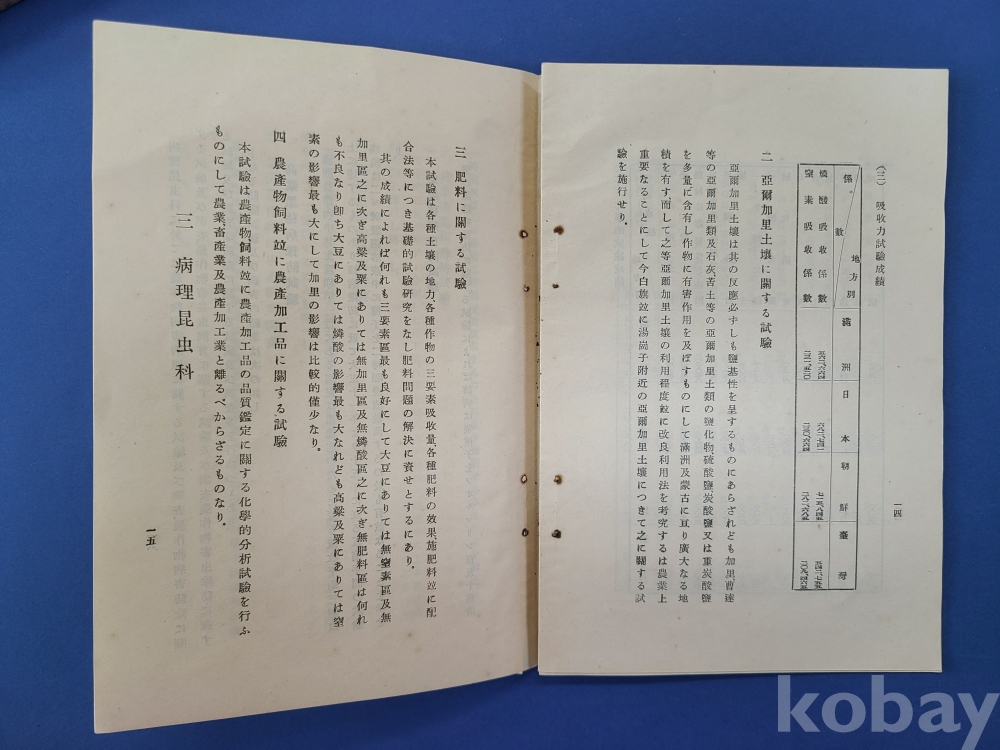 (三) 吸收力試驗成績
係數 地方別 滿洲 日本 朝鮮 臺灣
燐酸吸收係數
窒素吸收係數
二 亞爾加里土壤に關する試驗
亞爾加里土壤は其の反應必ずしも鹽基性を呈するものにあらざれども加里曹達
等の亞爾加里類及石灰、苦土等の亞爾加里土類の鹽化物、硫酸鹽、炭酸鹽又は重炭酸鹽
を多量に含有し作物に有害作用を及ぼすものにして滿洲及蒙古に亘り廣大なる地
積を有す而して之等亞爾加里土壤の利用程度竝に改良利用法を考究するは農業上
重要なることにして今白旗竝に湯崗子附近の亞爾加里土壤につきて之に關する試
驗を施行せり。
一四
三 肥料に關する試驗
本試驗は各種土壤の地力、各種作物の三要素吸收量、各種肥料の效果、施肥料竝に配
合法等につき基礎的試驗研究をなし肥料問題の解決に資せとするにあり。
其の成績によれば何れも三要素區最も良好にして大豆にありては無窒素區及無
加里區之に次ぎ高粱及粟にありては無加里區及無燐酸區之に次ぎ無肥料區は何れ
も不良なり卽ち大豆にありては燐酸の影響最も大なれども高粱及粟にありては窒
素の影響最も大にして加里の影響は比較的僅少なり。
四 農產物飼料竝に農產加工品に關する試驗
本試驗は農產物、飼料竝に農產加工品の品質鑑定に關する化學的分析試驗を行ふ
ものにして農業、畜產業及農產加工業と離るべからざるものなり。
三 病理昆虫科
一五
kobay